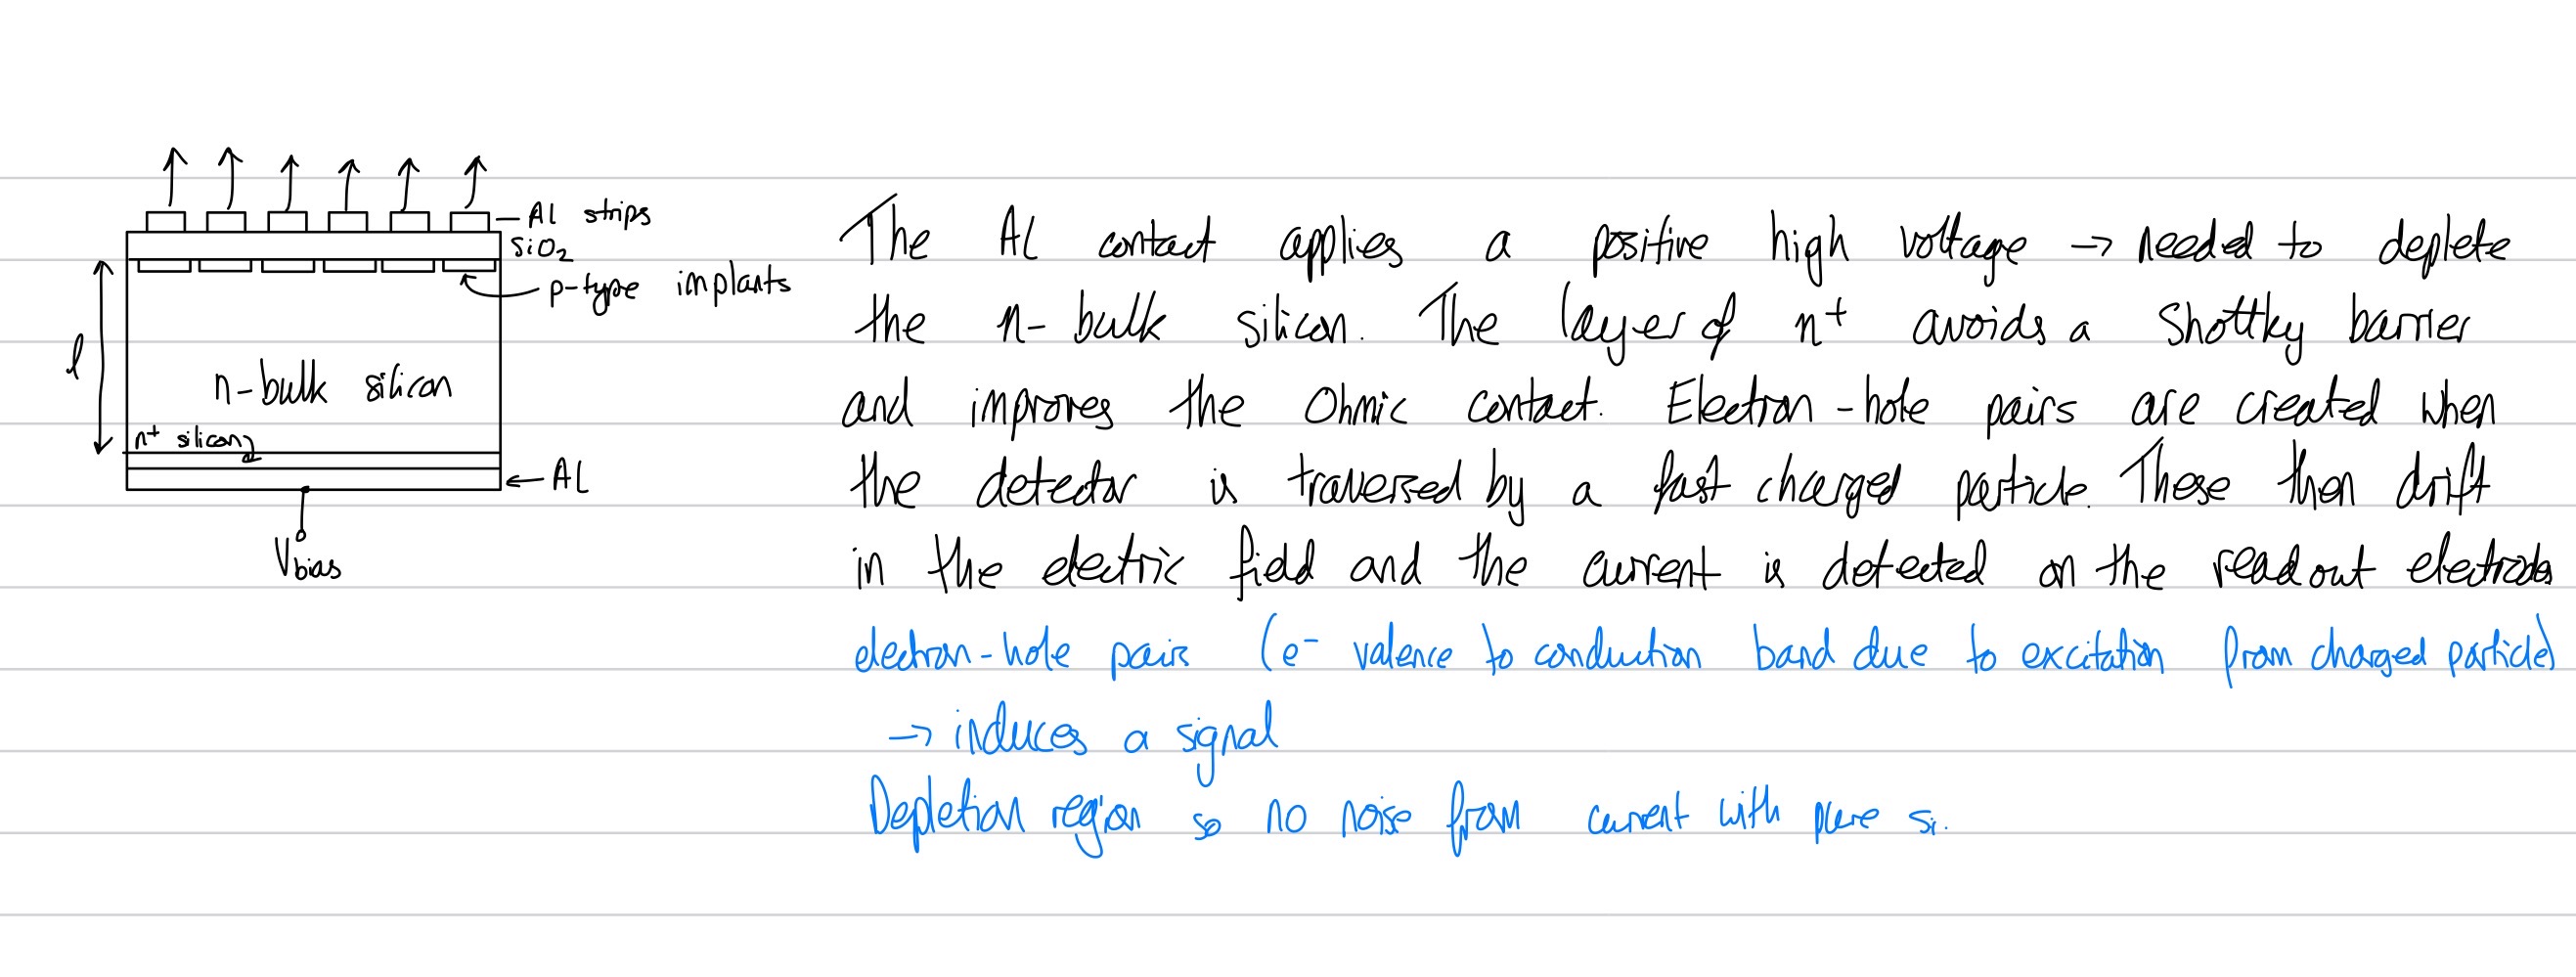 Al strips
SiO2
p-type implants
l
n-bulk silicon
n+ silicon
AL
Vbias
The AL contact applies a positive high voltage → needed to deplete
the n- bulk silicon. The layer of n+ avoids a Shottky barrier
and improves the Ohmic contact. Electron-hole pairs are created when
the detector is traversed by a fast charged particle. These then drift
in the electric field and the current is detected on the readout electrodes
electron-hole pairs (e- valence to conduction band due to excitation from charged particle)
→ induces a signal
Depletion region so no noise from current with pure si.